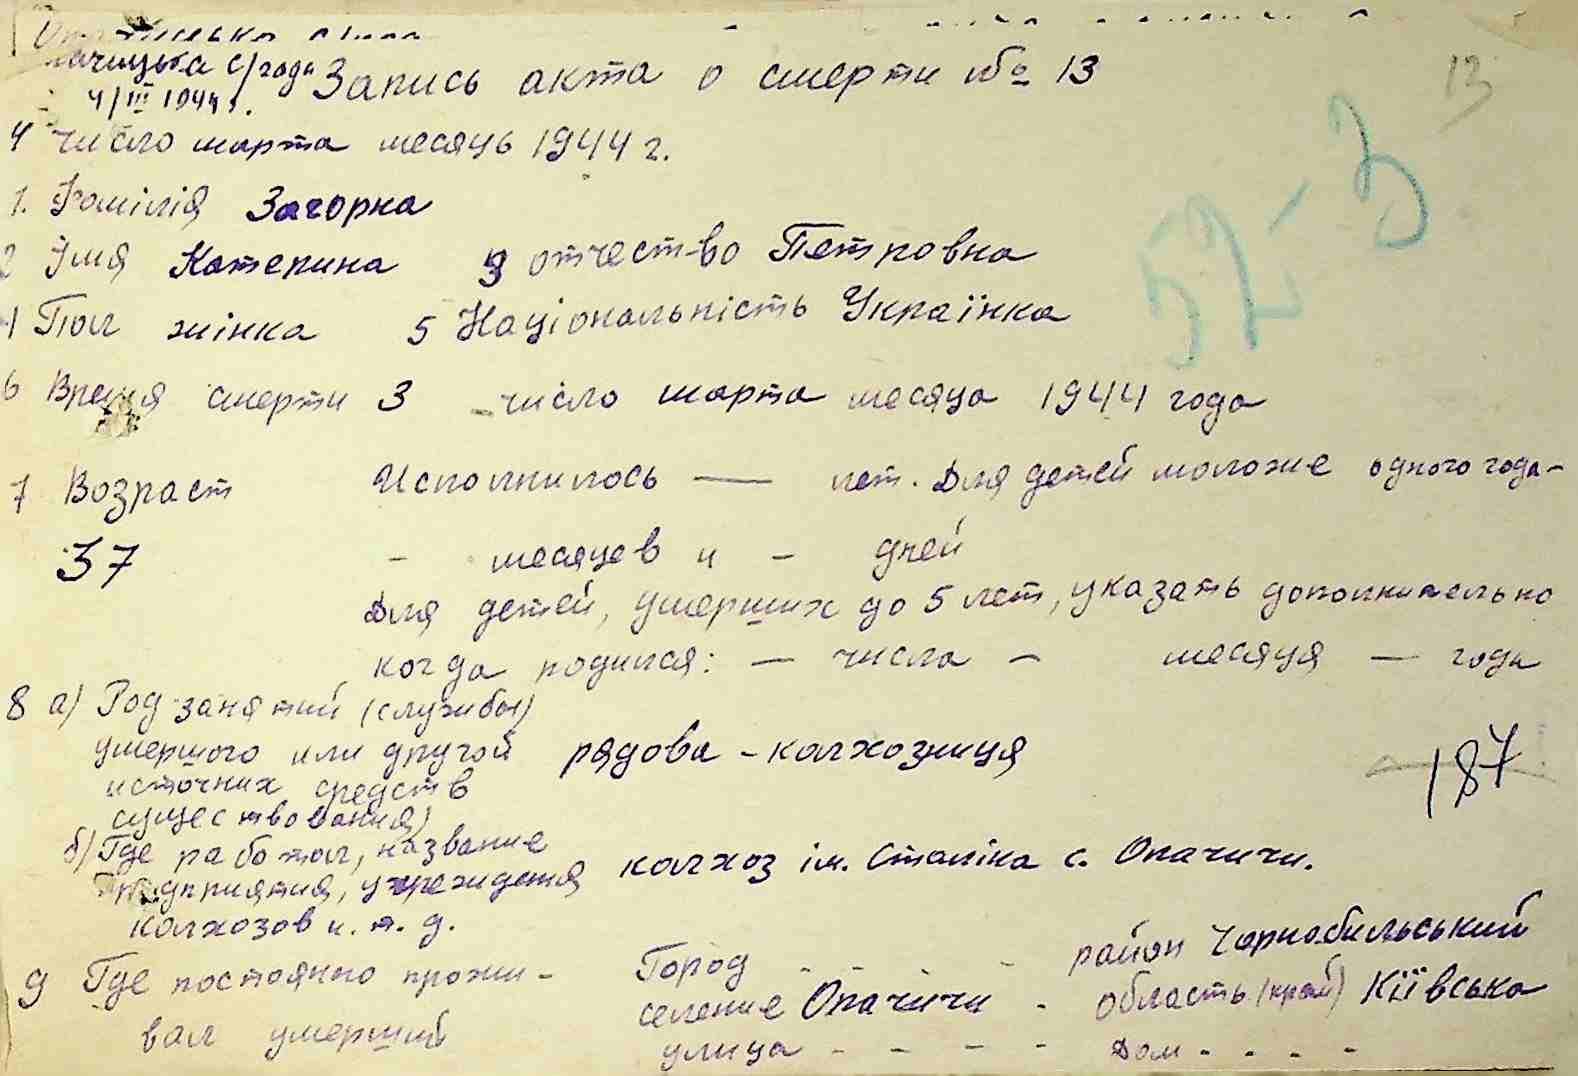 Опачицька с/года Запись акта о смерти № 13
13
4/III 1944 г.
4 число марта месяць 1944 г.
52-3
1. Фамілія Загорна
2 Імя Катерина 3 отчество Петровна
4 Пол жінка 5 Національність Українка
6 Время смерти 3 число марта месяца 1944 года
7 Возраст Исполнилось — лет. Для детей моложе одного года-
37 - месяцев и - дней
Для детей, умерших до 5 лет, указать дополнительно
когда родился: — числа - месяця — года
8 а) Род занятий (службы)
умершого или другой рядова - колхозниця
187
источник средств
существования)
б) Где работал, название
предприятия, учреждения колхоз ім. Сталіна с. Опачичи.
колхозов и. т. д.
9 Где постоянно прожи- Город - - - район Чорнобильський
селение Опачичи - область (край) Київська
вал умерший
улица - - - - Дом - - - -